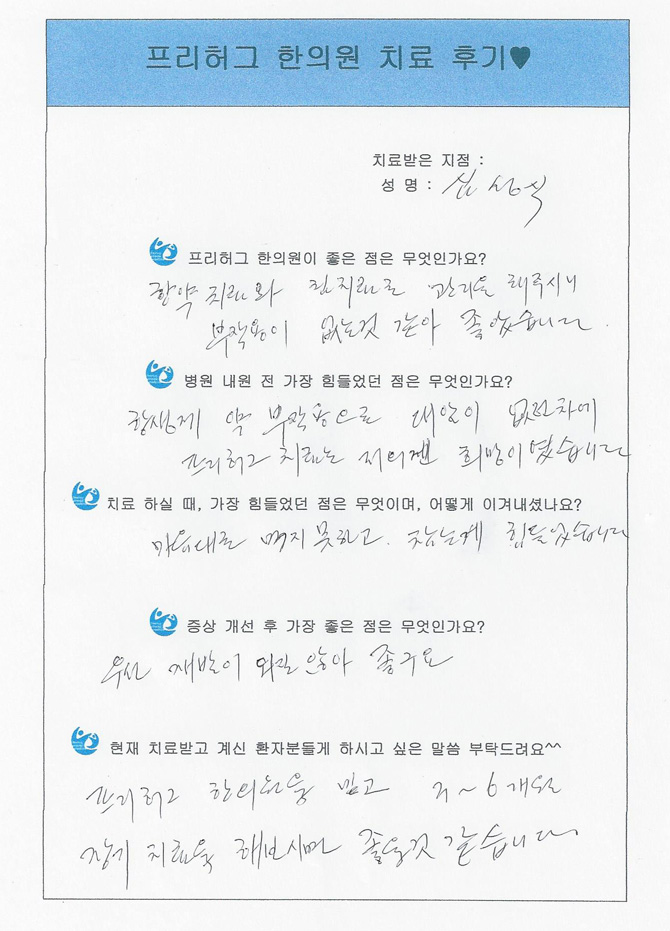 프리허그 한의원 치료 후기♥
치료받은 지점 :
성 명 : 심상식
프리허그 한의원이 좋은 점은 무엇인가요?
한약치료와 침치료로 관리을 해주시니
부작용이 없는것 같아 좋았습니다.
병원 내원 전 가장 힘들었던 점은 무엇인가요?
항생제 약 부작용으로 대안이 없던차에
프리허그 치료는 저의겐 희망이였습니다
치료 하실 때, 가장 힘들었던 점은 무엇이며, 어떻게 이겨내셨나요?
마음대로 먹지못하고. 참는게 힘들었습니다
증상 개선 후 가장 좋은 점은 무엇인가요?
우선 재발이 되질 않아 좋구요
현재 치료받고 계신 환자분들게 하시고 싶은 말씀 부탁드려요^^
프리허그 한의원을 믿고 ~6개월
장기 치료을 해보시면 좋을것 같습니다